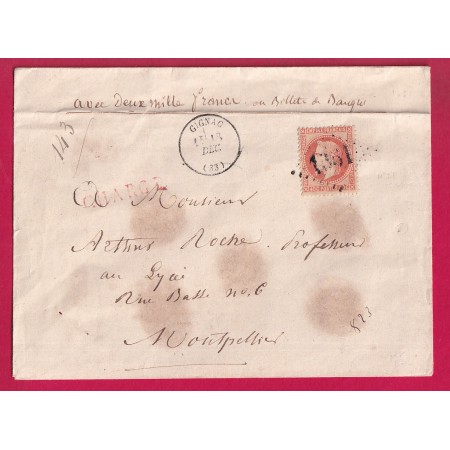 avec Deux mille francs en Billets de Banque
143
GIGNAC
13
DEC
(33)
CHARGÉ
A Monsieur
Arthur Roche, Professeur
au Lycée
Rue Basse no. 6
823
Montpellier